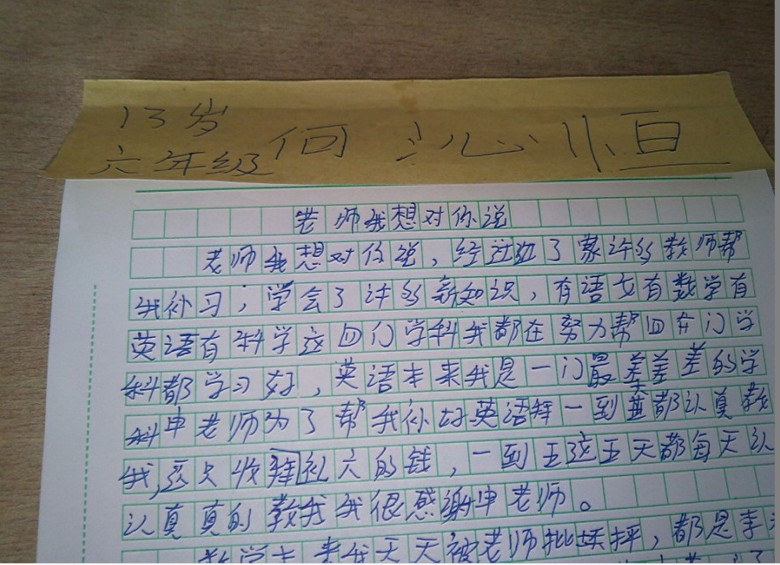 13岁
六年级 何沁恒
老师我想对你说
老师我想对你说，经过了家许多教师帮
我补习，学会了许多新知识，有语文有数学有
英语有科学这四门学科我都在努力帮四门学
科都学习好，英语本来我是一门最差差差的学
科申老师为了帮我补好英语每一到都认真教
我，只收礼六的钱，一到五这五天都每天认
认真真的教我我很感谢申老师。
数学本来我天天被老师批评，都是李